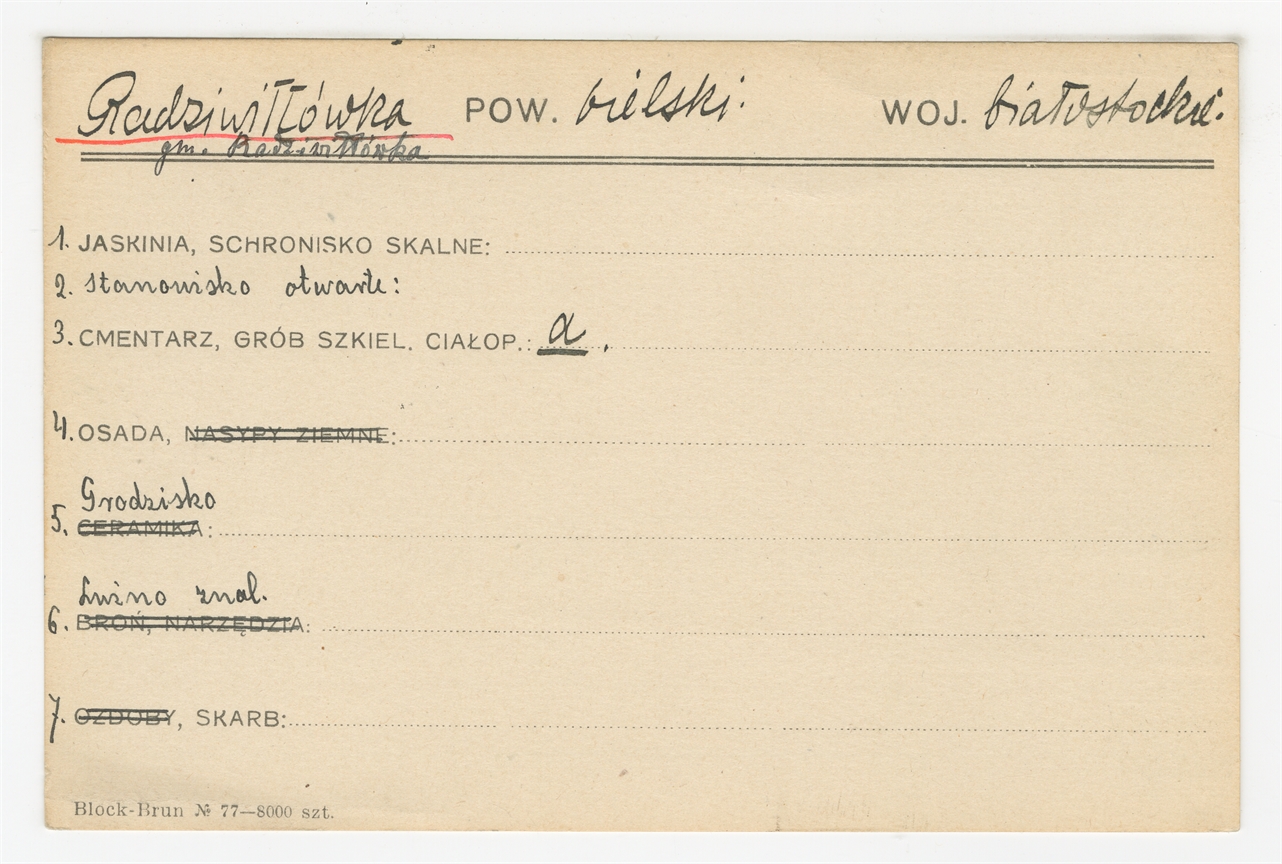 Radziwiłłówka POW. bielski. WOJ. białostockie.
gm. Radziwiłłówka
1. JASKINIA, SCHRONISKO SKALNE:
2. stanowisko otwarte:
3. CMENTARZ, GRÓB SZKIEL. CIAŁOP.: a.
4. OSADA, NASYPY ZIEMNE:
Grodzisko
5. CERAMIKA:
Luźno znal.
6. BROŃ, NARZĘDZIA:
7. OZDOBY, SKARB:
Block-Brun № 77—8000 szt.